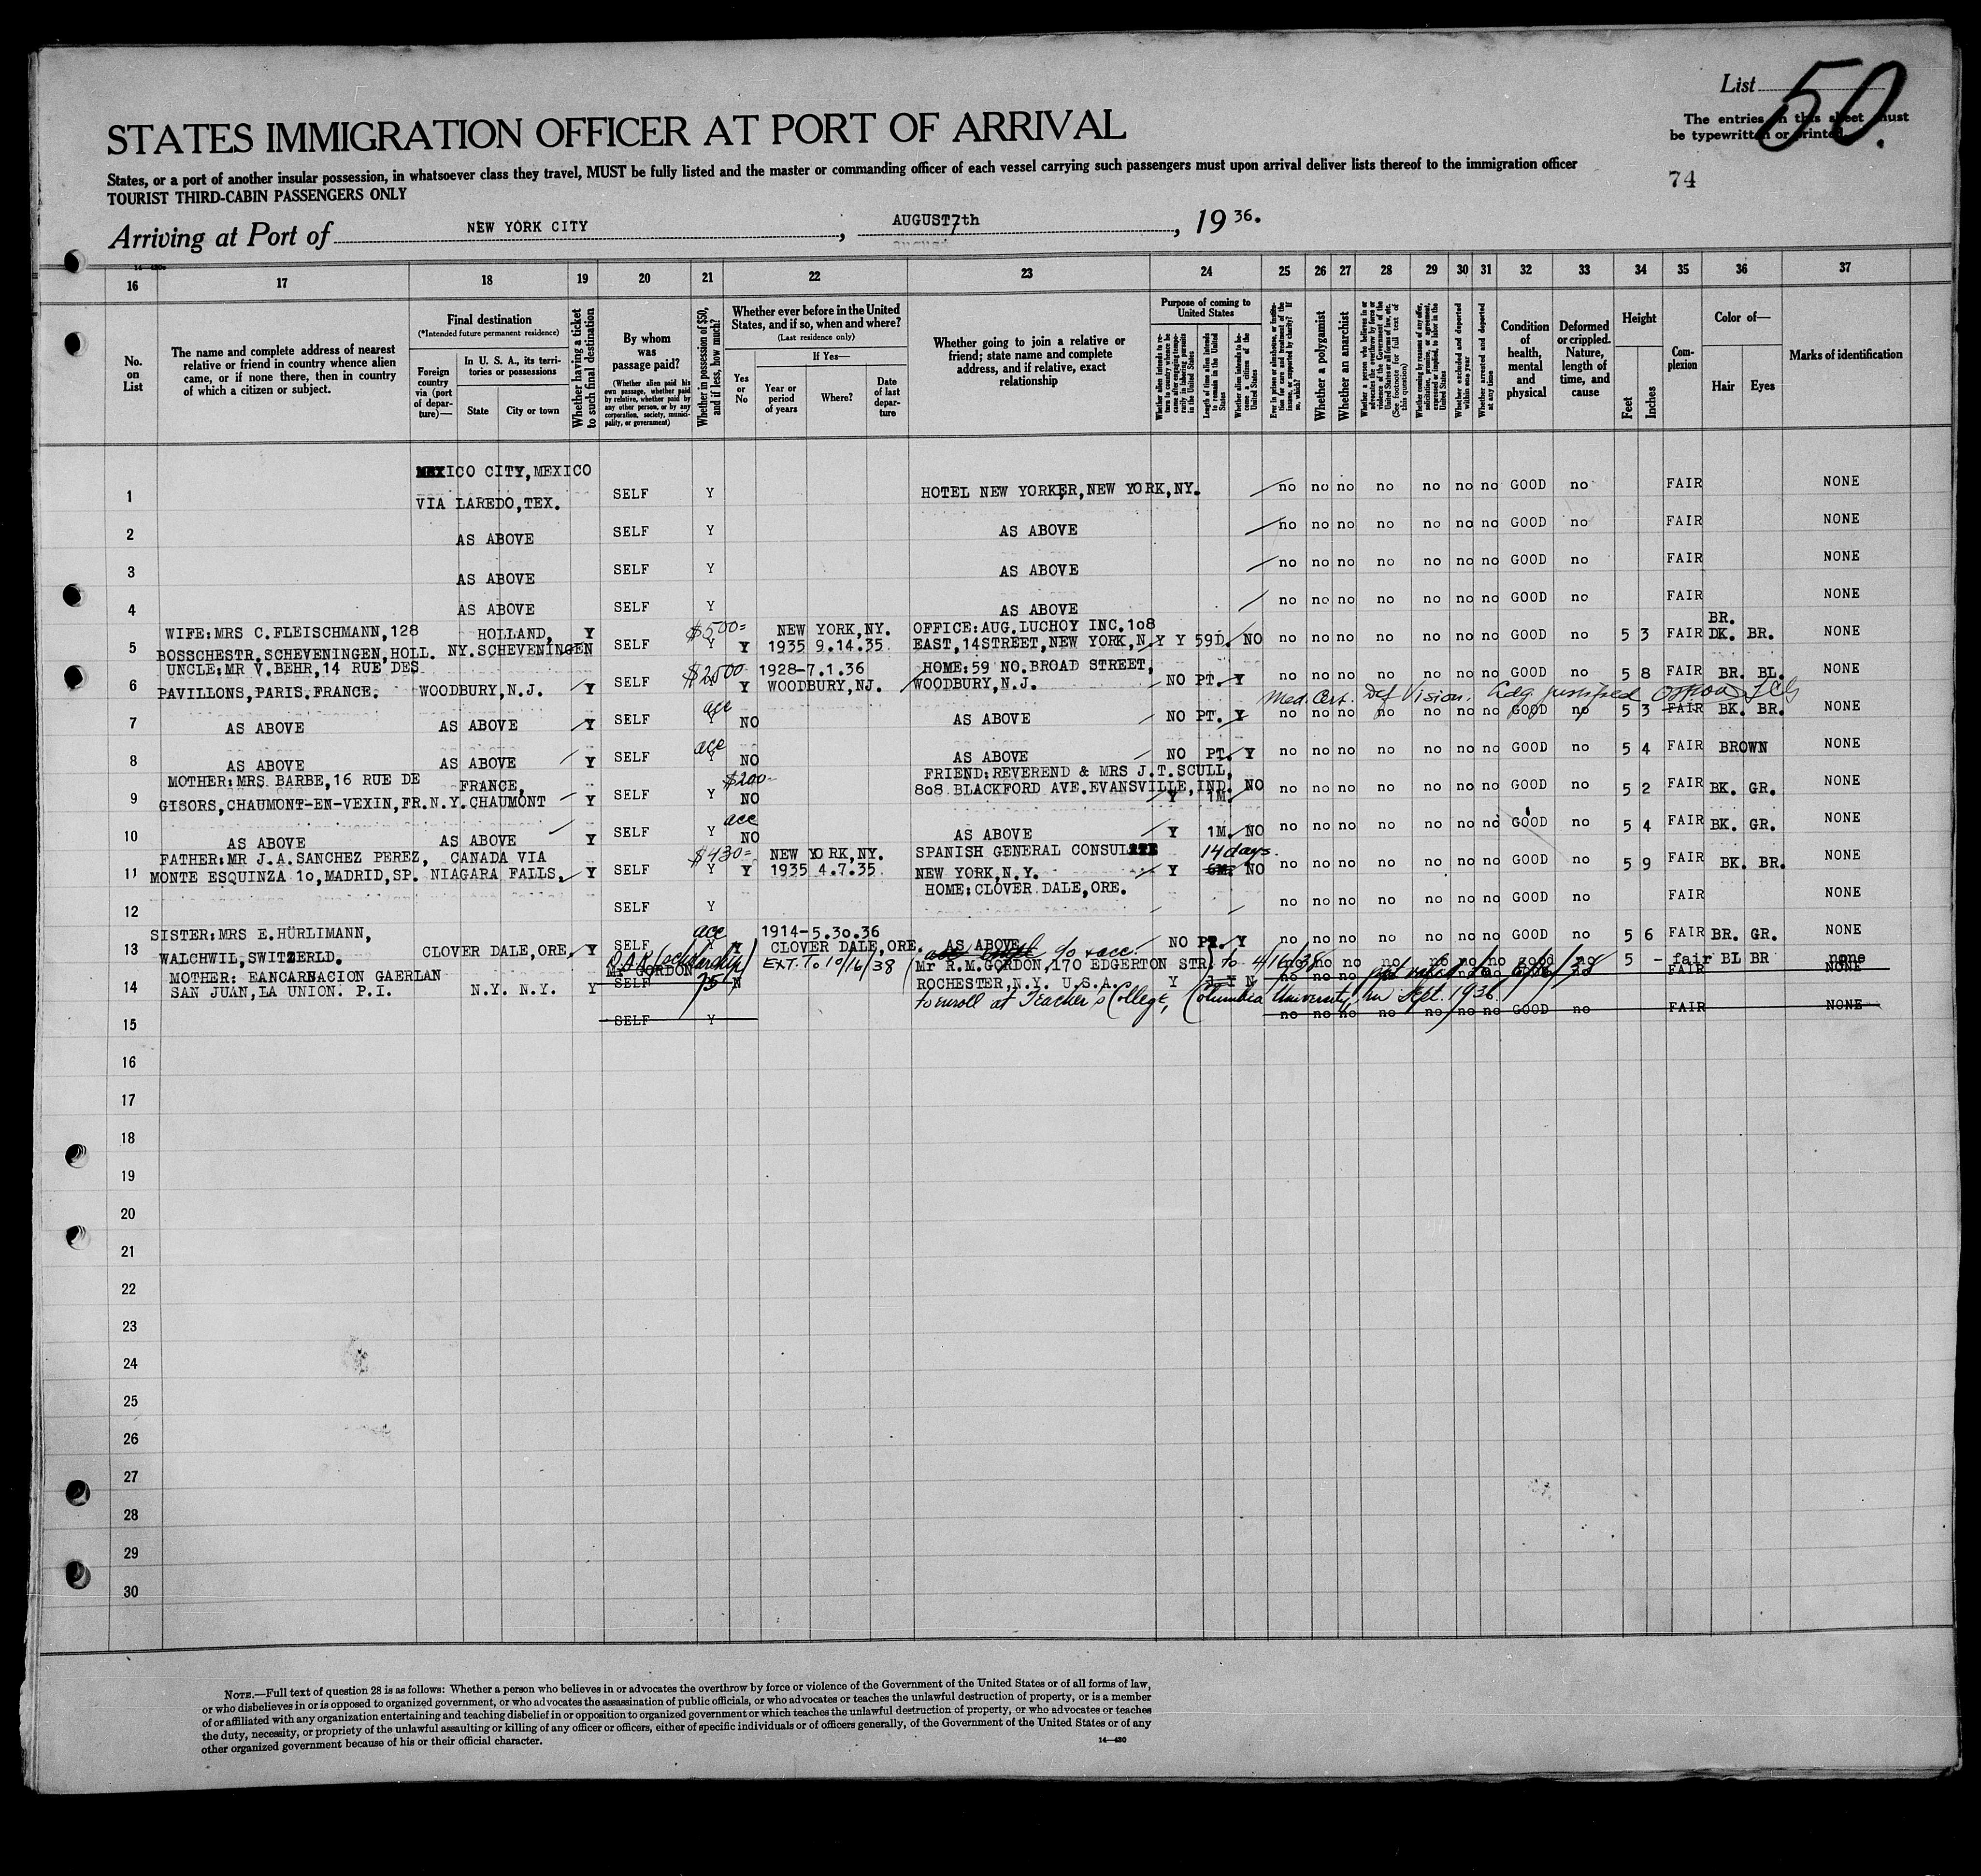 List 50.
The entries on this sheet must
be typewritten or printed.
74
STATES IMMIGRATION OFFICER AT PORT OF ARRIVAL
States, or a port of another insular possession, in whatsoever class they travel, MUST be fully listed and the master or commanding officer of each vessel carrying such passengers must upon arrival deliver lists thereof to the immigration officer
TOURIST THIRD-CABIN PASSENGERS ONLY
Arriving at Port of NEW YORK CITY, AUGUST 7th, 19 36.
16 17 18 19 20 21 22 23 24 25 26 27 28 29 30 31 32 33 34 35 36 37
No. on List
The name and complete address of nearest relative or friend in country whence alien came, or if none there, then in country of which a citizen or subject.
Final destination
(*Intended future permanent residence)
Foreign country via (port of departure)—
In U. S. A., its territories or possessions
State City or town
Whether having a ticket to such final destination
By whom was passage paid?
(Whether alien paid his own passage, whether paid by relative, whether paid by any other person, or by any corporation, society, municipality, or government)
Whether in possession of $50, and if less, how much?
Whether ever before in the United States, and if so, when and where?
(Last residence only)
Yes or No
If Yes—
Year or period of years
Where?
Date of last departure
Whether going to join a relative or friend; state name and complete address, and if relative, exact relationship
Purpose of coming to United States
Length of time alien intends to remain in the United States
Whether alien intends to become a citizen of the United States
Whether a polygamist
Whether an anarchist
(See footnote for full text of this question)
Whether excluded and deported within one year
Whether arrested and deported at any time
Condition of health, mental and physical
Deformed or crippled. Nature, length of time, and cause
Height
Feet Inches
Complexion
Color of—
Hair Eyes
Marks of identification
MEXICO CITY, MEXICO
1 VIA LAREDO, TEX. SELF Y HOTEL NEW YORKER, NEW YORK, NY. no no no no no no no GOOD no FAIR NONE
2 AS ABOVE SELF Y AS ABOVE no no no no no no no GOOD no FAIR NONE
3 AS ABOVE SELF Y AS ABOVE no no no no no no no GOOD no FAIR NONE
4 AS ABOVE SELF Y AS ABOVE no no no no no no no GOOD no FAIR NONE
WIFE: MRS C. FLEISCHMANN, 128 HOLLAND, Y $500= NEW YORK, NY. OFFICE: AUG. LUCHOY INC. 108 BR.
5 BOSSCHESTR, SCHEVENINGEN, HOLL. NY. SCHEVENINGEN SELF Y Y 1935 9.14.35 EAST, 14STREET, NEW YORK, N.Y Y 59D. NO no no no no no no no GOOD no 5 3 FAIR DK. BR. NONE
UNCLE: MR V. BEHR, 14 RUE DES $2500 1928-7.1.36 HOME: 59 NO. BROAD STREET,
6 PAVILLONS, PARIS. FRANCE. WOODBURY, N.J. Y SELF Y WOODBURY, NJ. WOODBURY, N.J. NO PT. Y no no no no no no no GOOD no 5 8 FAIR BR. BL. NONE
Med. Cert. Def Vision.
7 AS ABOVE AS ABOVE Y SELF acc Y NO AS ABOVE NO PT. Y no no no no no no no GOOD no 5 3 FAIR BK. BR. NONE
8 AS ABOVE AS ABOVE Y SELF acc Y NO AS ABOVE NO PT. Y no no no no no no no GOOD no 5 4 FAIR BROWN NONE
MOTHER: MRS. BARBE, 16 RUE DE FRANCE, $200- FRIEND: REVEREND & MRS J.T. SCULL,
9 GISORS, CHAUMONT-EN-VEXIN, FR. N.Y. CHAUMONT Y SELF Y NO 808 BLACKFORD AVE. EVANSVILLE, IND. Y 1M. NO no no no no no no no GOOD no 5 2 FAIR BK. GR. NONE
10 AS ABOVE AS ABOVE Y SELF acc Y NO AS ABOVE Y 1M. NO no no no no no no no GOOD no 5 4 FAIR BK. GR. NONE
FATHER: MR J.A. SANCHEZ PEREZ, CANADA VIA $430= NEW YORK, NY. SPANISH GENERAL CONSULATE 14 days.
11 MONTE ESQUINZA 10, MADRID, SP. NIAGARA FALLS, Y SELF Y Y 1935 4.7.35 NEW YORK, N.Y. Y 6M. NO no no no no no no no GOOD no 5 9 FAIR BK. BR. NONE
HOME: CLOVER DALE, ORE.
12 SELF Y no no no no no no no GOOD no FAIR NONE
SISTER: MRS E. HÜRLIMANN, acc 1914-5.30.36
13 WALCHWIL, SWITZERLD. CLOVER DALE, ORE. Y SELF Y CLOVER DALE, ORE. AS ABOVE NO PT. Y no no no no no no no GOOD no 5 6 FAIR BR. GR. NONE
MOTHER: EANCARNACION GAERLAN Mr GORDON EXT. TO 10/16/38 Mr R.M. GORDON, 170 EDGERTON STR. to 4/16/38 no no no no no no good no 5 - fair BL BR none
14 SAN JUAN, LA UNION. P.I. N.Y. N.Y. Y SELF 75 N ROCHESTER, N.Y. U.S.A. Y FAIR NONE
to enroll at Teacher's College, Columbia University, in Sept. 1936.
15 SELF Y no no no no no no no GOOD no FAIR NONE
16
17
18
19
20
21
22
23
24
25
26
27
28
29
30
NOTE.—Full text of question 28 is as follows: Whether a person who believes in or advocates the overthrow by force or violence of the Government of the United States or of all forms of law,
or who disbelieves in or is opposed to organized government, or who advocates the assassination of public officials, or who advocates or teaches the unlawful destruction of property, or is a member
of or affiliated with any organization entertaining and teaching disbelief in or opposition to organized government or which teaches the unlawful destruction of property, or who advocates or teaches
the duty, necessity, or propriety of the unlawful assaulting or killing of any officer or officers, either of specific individuals or of officers generally, of the Government of the United States or of any
other organized government because of his or their official character.
14—430